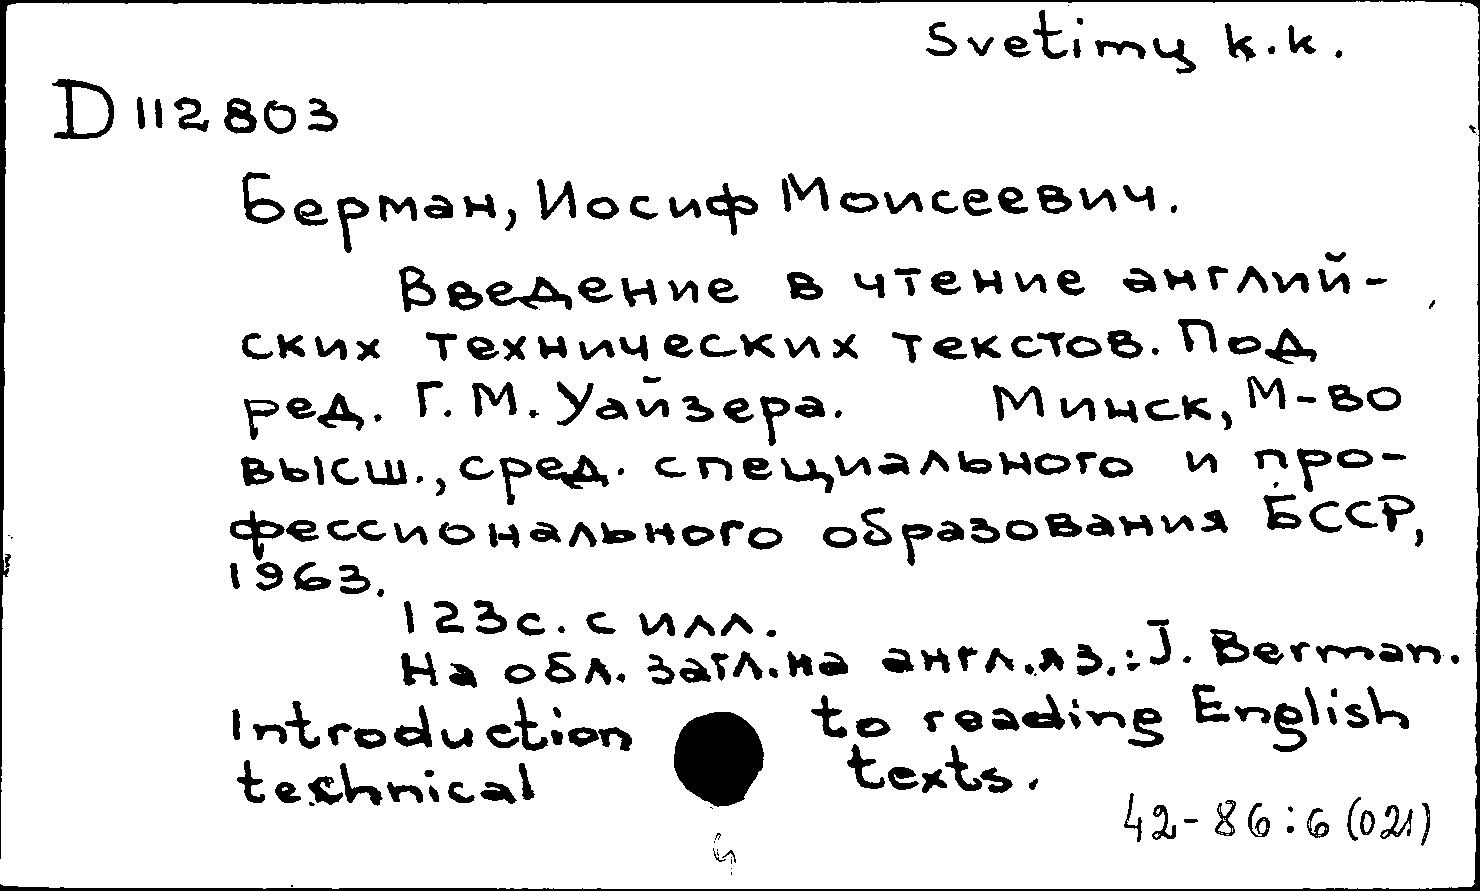 Svetimų k.k.
D 112803
Берман, Иосиф Моисеевич.
Введение в чтение англий-
ских технических текстов. Под
ред. Г. М. Уайзера. Минск, М-во
высш., сред. специального и про-
фессионального образования БССР,
1963.
123с. с илл.
На обл. загл. на англ. яз.: J. Berman.
Introduction to reading English
technical texts.
42-86:6(021)